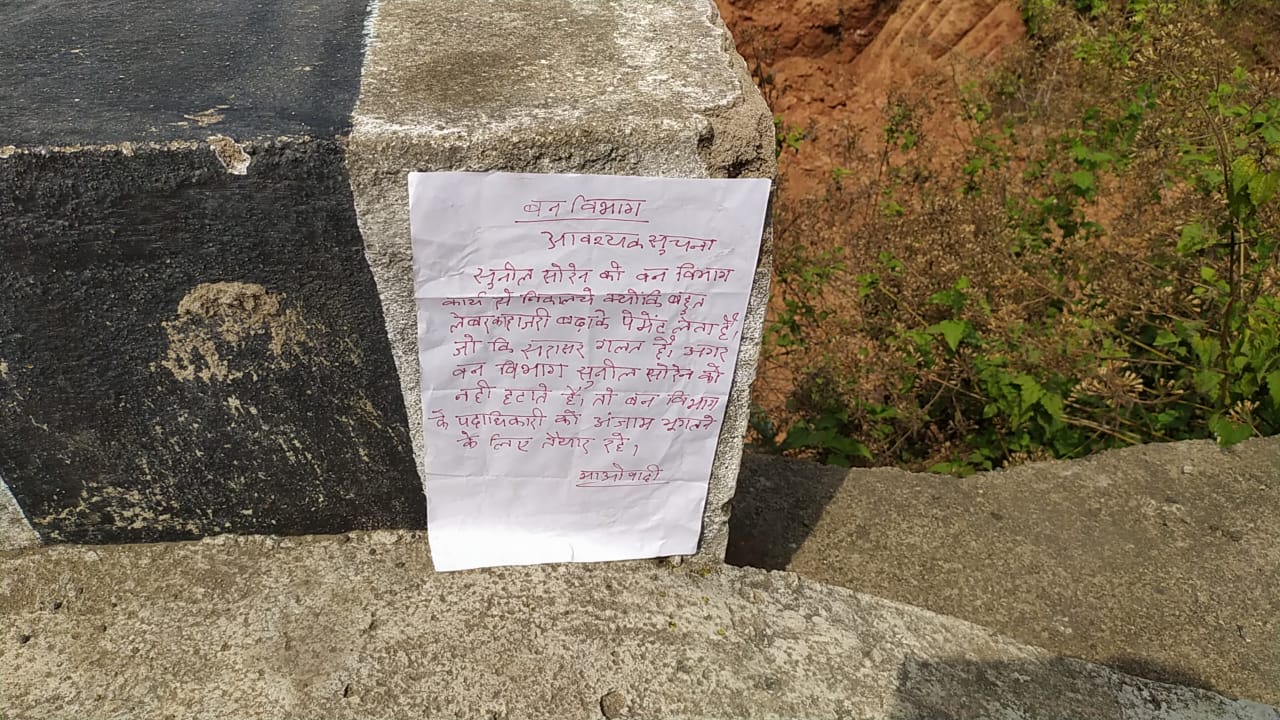 वन विभाग
आवश्यक सुचना
सुनील सोरेन को वन विभाग
कार्य से निकालये क्योंकि बहुत
लेबर का हाजरी बढ़ाके पेमेंट लेता है,
जो कि सरासर गलत है। अगर
वन विभाग सुनील सोरेन को
नहीं हटाते हैं, तो वन विभाग
के पदाधिकारी को अंजाम भुगतने
के लिए तैयार रहें।
माओवादी